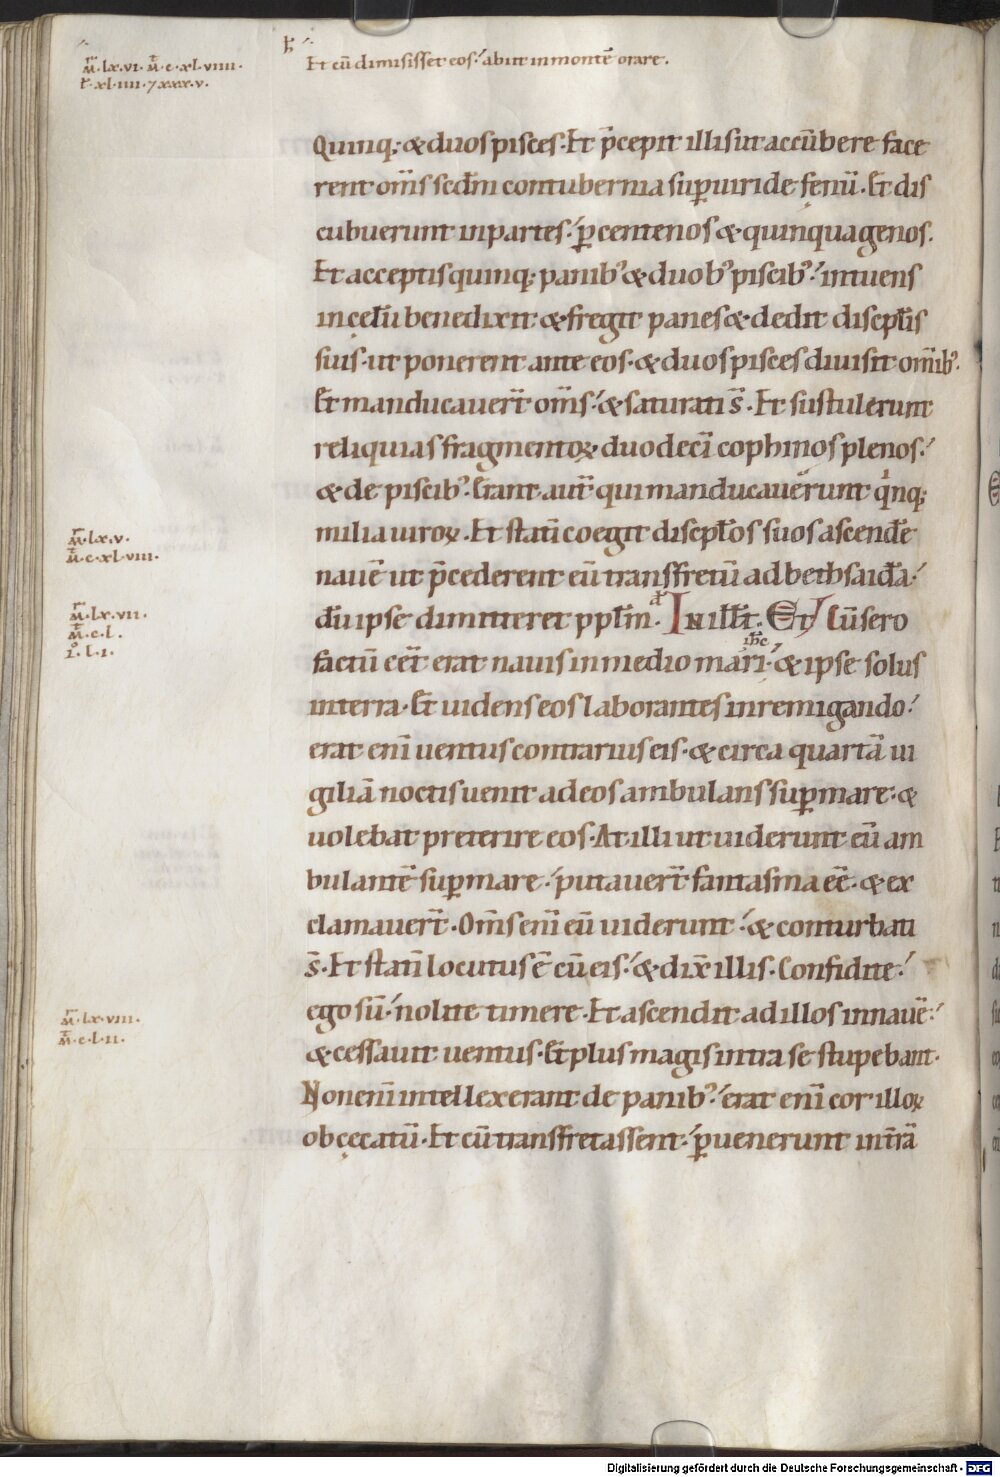 m̄·lx·vi· m̄·c·xl·viiii·
t̄·xl·iiii·⁊xxx·v·
h̄
Et cū dimisisset eos· abiit in montē orare.
Quinq; & duos pisces· Et p̄cepit illis ut accūbere face
rent om̄s scd̄m contubernia sup uiride fenū· Et dis
cubuerunt in partes· p centenos & quinquagenos.
Et acceptis quinq; panib; & duob; piscib; intuens
in cęlū benedixit & fregit panes & dedit discipl̄is
suis· ut ponerent ante eos· & duos pisces diuisit om̄ib;
Et manducauer̄t om̄s· & saturati s̄· Et sustulerunt
reliquias fragmentoꝝ duodecī cophinos plenos·
& de piscib; Erant aut̄ qui manducauerunt qⁱnq;
milia uiroꝝ· Et statī coegit discipl̄os suos ascend̄e
m̄·lx·v·
m̄·c·xl·viii·
nauē ut p̄cederent eū trans fretū ad bethsaid̄a·
m̄·lx·vii·
m̄·c·l·
i̊·l·i·
dū ipse dimitteret ppl̄m· In ill̄t· Et Cū sero
ih̄c
factū cēt erat nauis in medio mari· & ipse solus
in terra· Et uidens eos laborantes in remigando·
erat enī uentus contrarius eis· & circa quartā ui
giliā noctis uenit ad eos ambulans sup mare· &
uolebat preterire eos· At illi ut uiderunt eū am
bulantē sup mare· putauer̄t fantasma eē· & ex
clamauer̄t· Om̄s enī eū uiderunt· & conturbati
s̄· Et statī locutus ē cū eis· & dix̄ illis· Confidite·
m̄·lx·viii·
m̄·c·l·ii·
ego sū· nolite timere· Et ascendit ad illos in nauē·
& cessauit uentus· Et plus magis intra se stupebant·
Non enī intellexerant de panib; erat enī cor illoꝝ
obcęcatū· Et cū transfretassent· puenerunt in tr̄ā
Digitalisierung gefördert durch die Deutsche Forschungsgemeinschaft - DFG